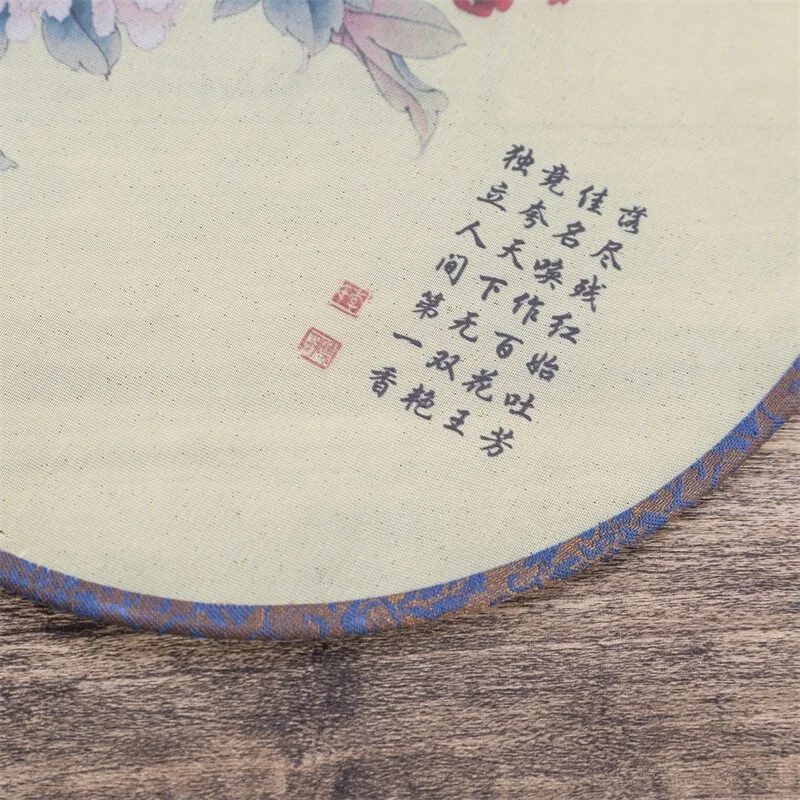 落尽残红始吐芳
佳名唤作百花王
竞夸天下无双艳
独立人间第一香